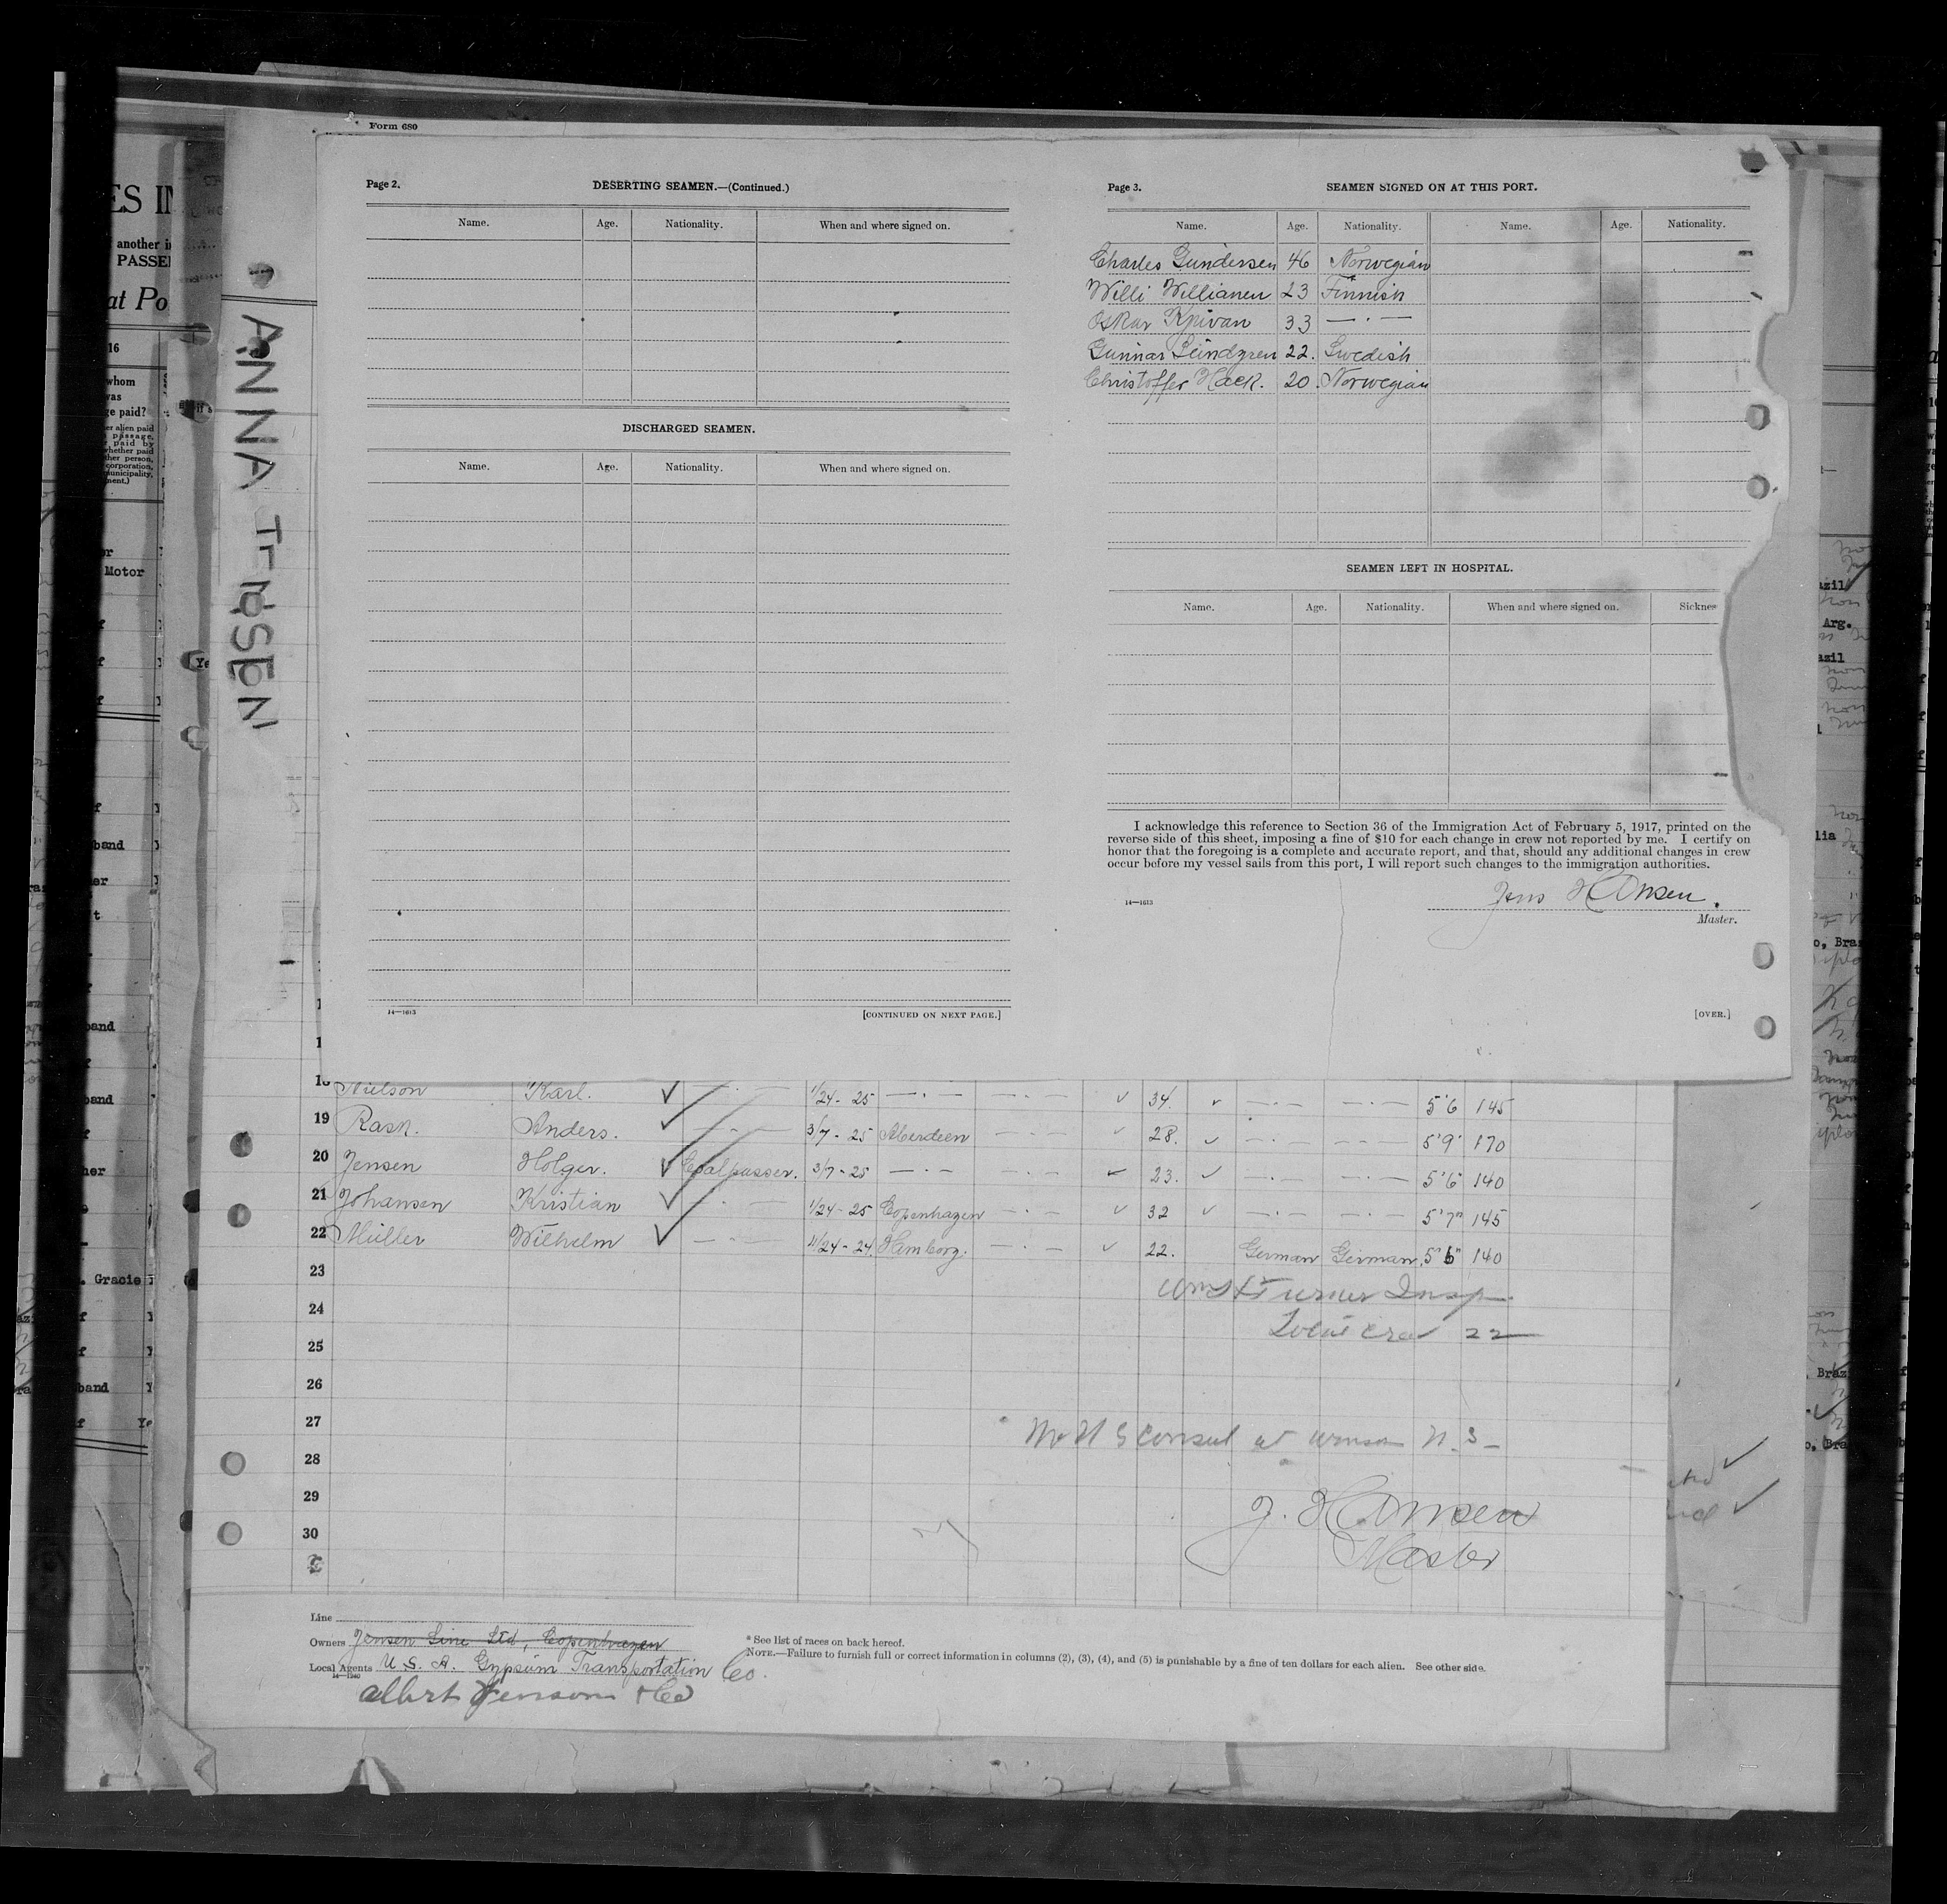 Form 680
ANNA
Page 2.
DESERTING SEAMEN.—(Continued.)
Name. Age. Nationality. When and where signed on.
DISCHARGED SEAMEN.
Name. Age. Nationality. When and where signed on.
14—1613
[CONTINUED ON NEXT PAGE.]
Page 3.
SEAMEN SIGNED ON AT THIS PORT.
Name. Age. Nationality. Name. Age. Nationality.
Charles Gundersen 46 Norwegian
Willi Willianen 23 Finnish
Oskar 33 —·—
Gunnar Lundgren 22. Swedish
Christoffer Hack. 20. Norwegian
SEAMEN LEFT IN HOSPITAL.
Name. Age. Nationality. When and where signed on. Sicknes
I acknowledge this reference to Section 36 of the Immigration Act of February 5, 1917, printed on the
reverse side of this sheet, imposing a fine of $10 for each change in crew not reported by me. I certify on
honor that the foregoing is a complete and accurate report, and that, should any additional changes in crew
occur before my vessel sails from this port, I will report such changes to the immigration authorities.
Jens Hansen.
14—1613
Master.
[OVER.]
18 Nielson Karl. ✓ —·— 1/24-25 —·— —·— ✓ 34. ✓ —·— —·— 5'6 145
19 Rask. Anders. ✓ —·— 3/7-25 Aberdeen —·— ✓ 28. ✓ —·— —·— 5'9" 170
20 Jensen Holger. ✓ Coalpasser. 3/7-25 —·— —·— ✓ 23. ✓ —·— —·— 5'6" 140
21 Johansen Kristian ✓ —·— 1/24-25 Copenhagen —·— ✓ 32 ✓ —·— —·— 5'7" 145
22 Müller Wilhelm ✓ —·— 11/24-24. Hamborg. —·— ✓ 22. German German 5'6" 140
23
24
Turner Insp
Total crew 22
25
26
27
No U S Consul at N.S—
28
29
J. Hansen
30
Master
Line
Owners Jensen Line Ltd, Copenhagen
Local Agents U.S.A. Gypsum Transportation Co.
14—1240
Albert Jenson & Co
* See list of races on back hereof.
NOTE.—Failure to furnish full or correct information in columns (2), (3), (4), and (5) is punishable by a fine of ten dollars for each alien. See other side.
another
PASSE
at Po
16
whom
was
paid?
Motor
band
band
band
. Gracie
band
Arg.
Braz